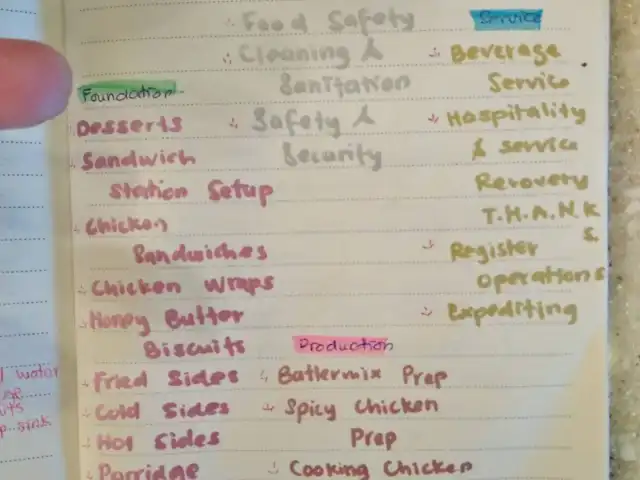 Food Safety
Cleaning &
Sanitation
Safety &
Security
Service
Beverage
Service
Hospitality
& Service
Recovery
T.H.A.N.K
S.
Register
Operations
Expediting
Foundation
Desserts
Sandwich
Station Setup
Chicken
Sandwiches
Chicken Wraps
Honey Butter
Biscuits
Fried Sides
Cold Sides
Hot Sides
Porridge
Production
Battermix Prep
Spicy Chicken
Prep
Cooking Chicken